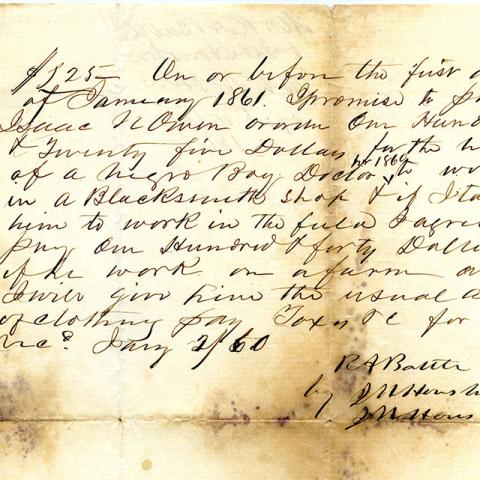 $125— On or before the first
of January 1861. I promise to
Isaac N Owen or order One Hund
& Twenty five Dollars for the
of a Negro Boy Doctor for 1860 to wo
in a Blacksmith shop & if I ta
him to work in the field I agree
pay One Hundred & forty Dolla
if he work on a farm
I will give him the usual
of clothing pay Tax &c for
Jany 2/60
R A Battle
by